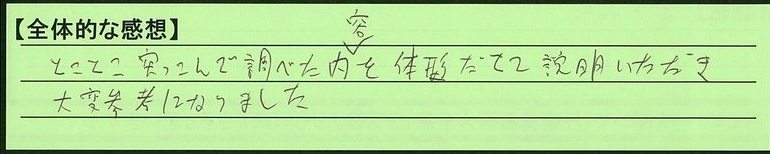 【全体的な感想】
とことこ突っこんで調べた内容を体形だてて説明いただき
大変参考になりました